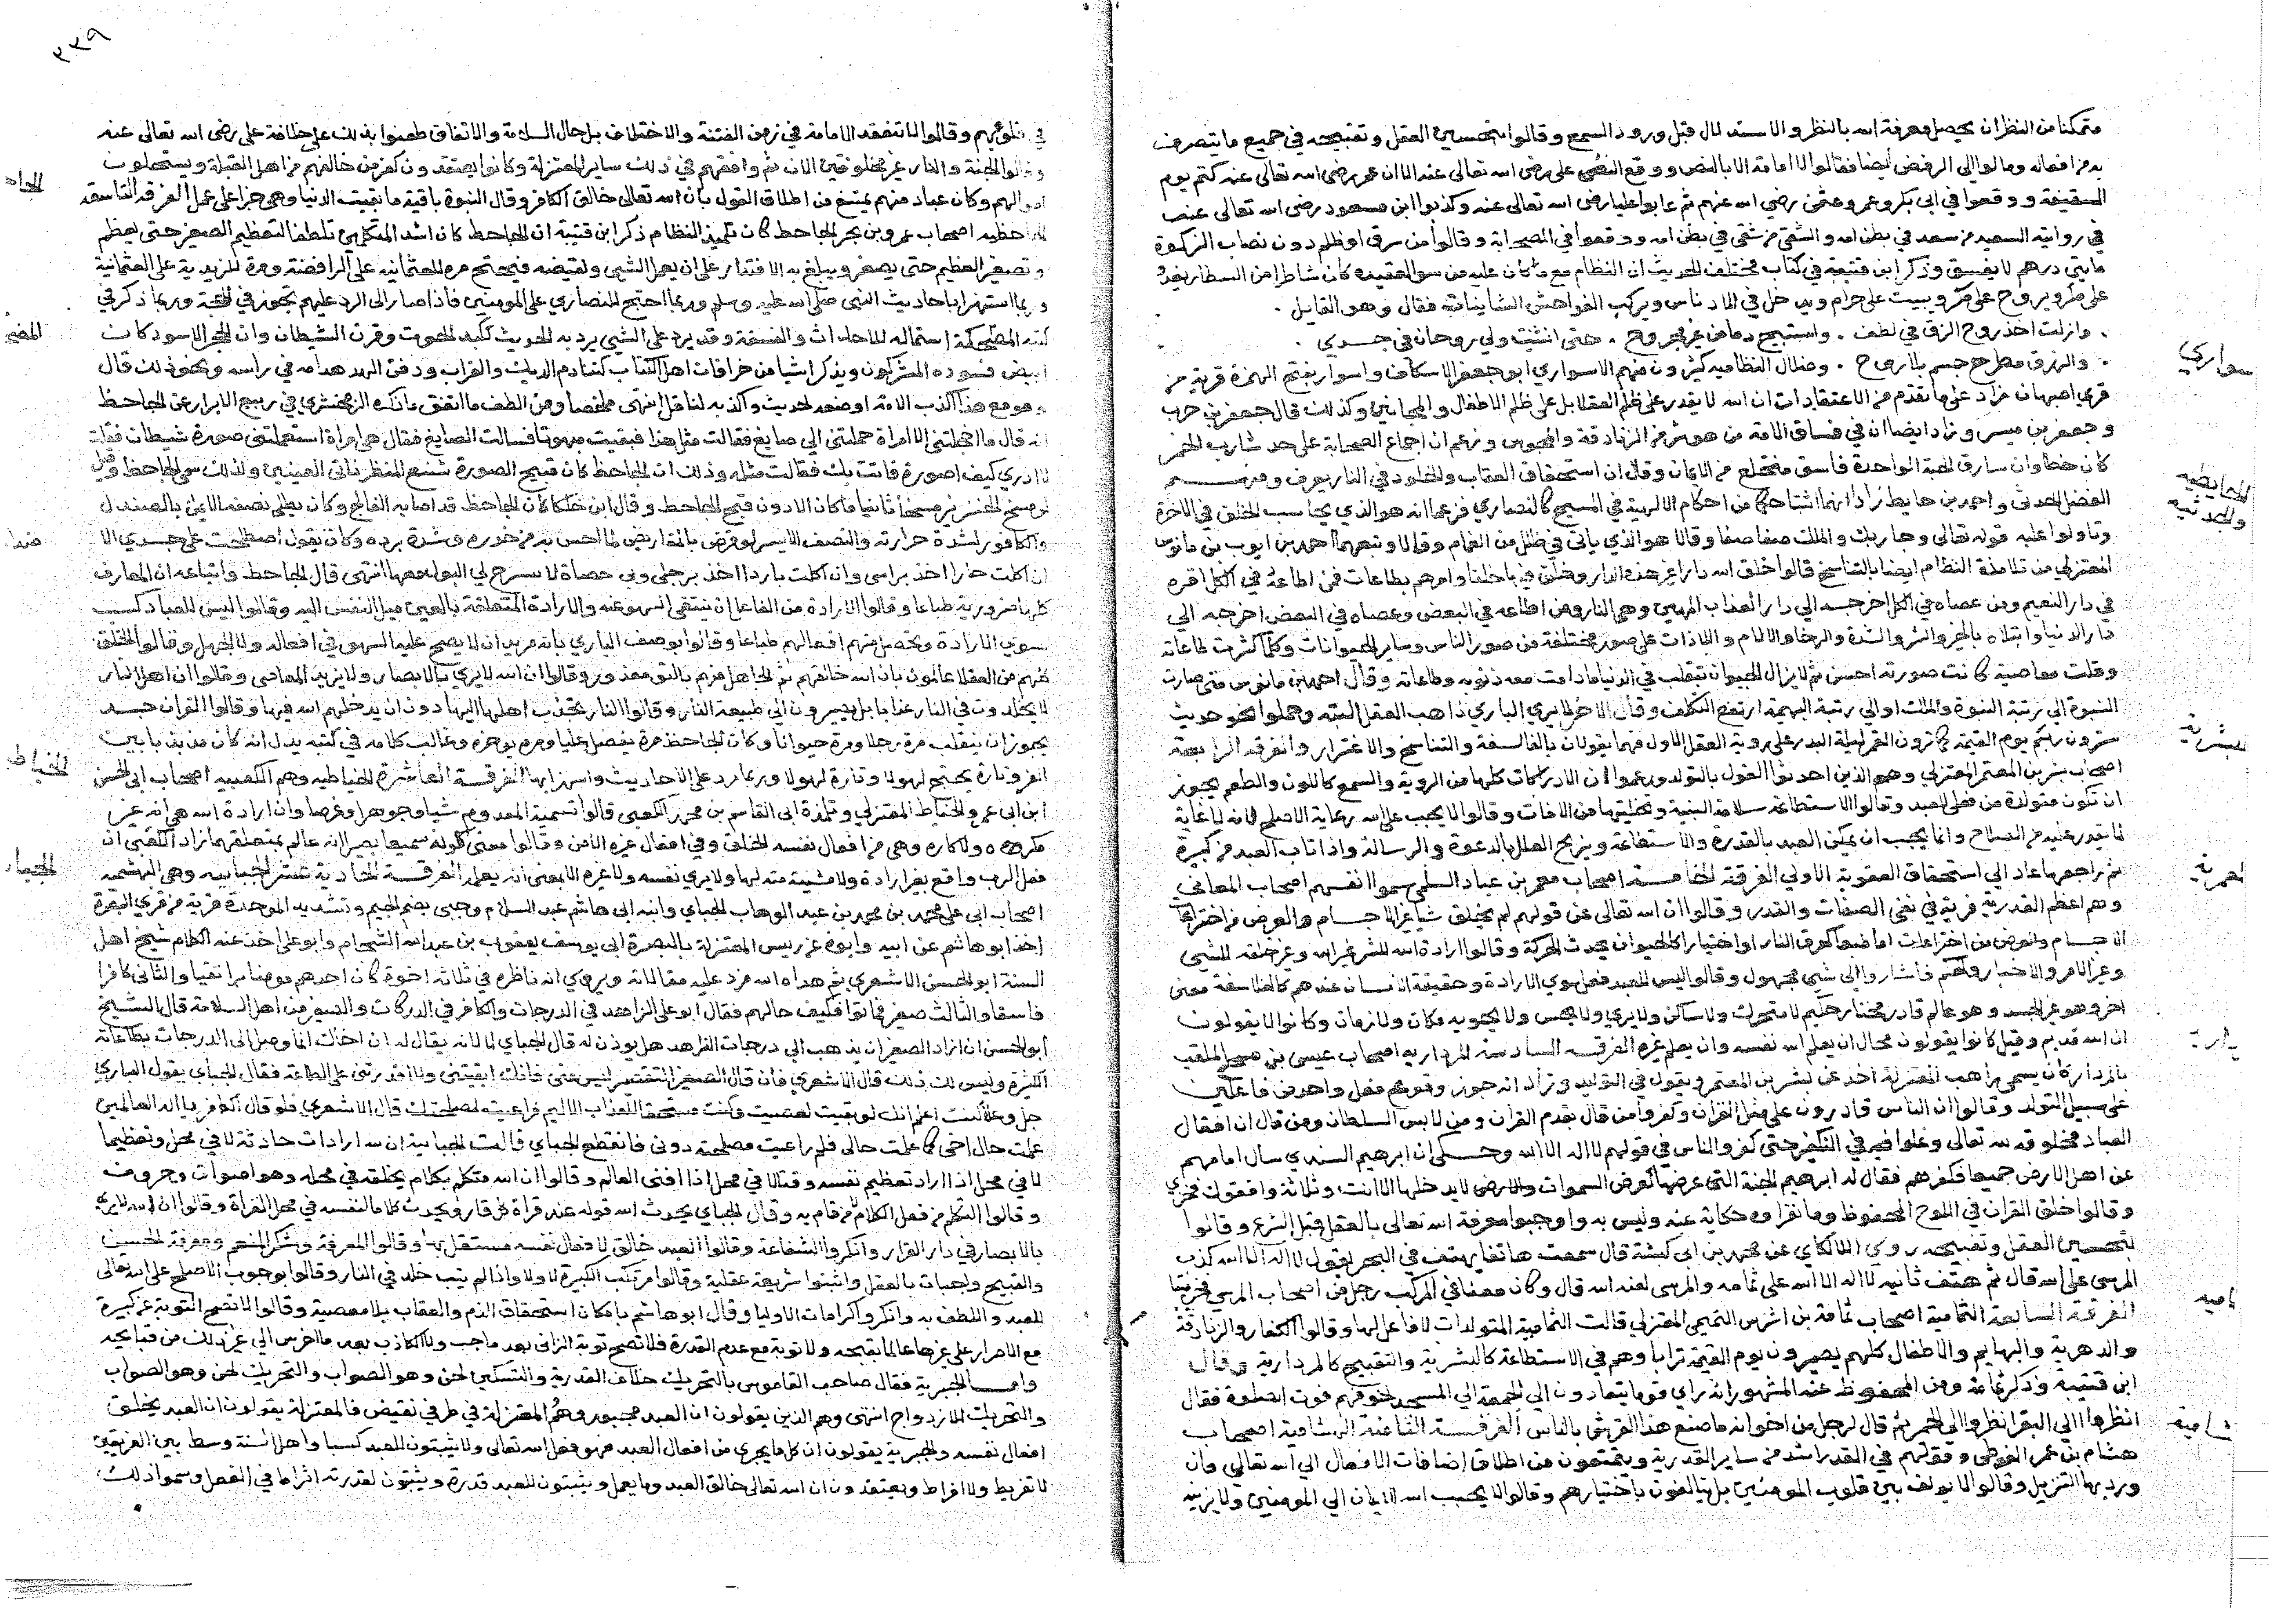 متمكنا من النظر ان يحصل معرفة الله بالنظر والاستدلال قبل ورود السمع وقالوا بتحسين العقل وتقبيحه في جميع ما يتصرف
به من افعاله ومالوا الى الرفض ايضا فقالوا لا امامة الا بالنص ووقع النص على علي رضى الله تعالى عنه الا ان عمر رضى الله تعالى عنه كتم يوم
السقيفة ووقعوا في ابى بكر وعمر وعثمن رضي الله عنهم ثم عابوا عليا رضى الله تعالى عنه وكذبوا ابن مسعود رضى الله تعالى عنه
في روايته السعيد من سعد في بطن امه والشقى من شقى في بطن امه ووقعوا في الصحابة وقالوا من سرق او ظلم دون نصاب الزكوة
مايتي درهم لا يفسق وذكر ابن قتيبة في كتاب مختلف الحديث ان النظام مع ما كان عليه من سو العقيده كان شاطرا من الشطار يغدو
على سكر ويروح على سكر ويبيت على حرام ويدخل في الادناس ويركب الفواحش الشاينات فقال وهو القايل .
. وازلت اخذ روح الزق في لطف . واستبيح دما من غير مجروح . حتى انثنيت ولي روحان في جسدي .
. والزق مطرح جسم بلا روح . وضلال النظاميه كثيرون منهم الاسواري ابو جعفر الاسكاف واسوار بفتح الهمزة قرية من
قري اصبهان زاد على ما تقدم من الاعتقادات ان الله لا يقدر على ظلم العقلا بل على ظلم الاطفال والمجانين وكذلك قال جعفر بن حرب
وجعفر بن ميسر وزاد ايضا ان في فساق الامة من هو شر من الزنادقة والمجوس وزعم ان اجماع الصحابة على حد شارب الخمر
كان خطا وان سارق الحبة الواحدة فاسق منخلع من الايمان وقال ان استحقاق العقاب والخلود في النار يعرف ومنهم
الفضل الحدثى واحمد بن حايط زادا انهما اثبتا حكما من احكام الالهية في المسيح كالنصارى فزعما انه هو الذي يحاسب الخلق في الاخرة
وتاولوا عليه قوله تعالى وجا ربك والملك صفا صفا وقالا هو الذي ياتى في ظلل من الغمام وقالا وتبعهما احمد بن ايوب بن مانوس
المعتزلي من تلامذة النظام ايضا بالتناسخ قالوا خلق الله دارا غير هذه الدار وخلق فيها خلقا وامرهم بطاعات فمن اطاعه في الكل اقره
في دار النعيم ومن عصاه في الكل اخرجه الى دار العذاب المهين وهي النار ومن اطاعه في البعض وعصاه في البعض اخرجه الى
دار الدنيا وابتلاه بالخير والشر والشدة والرخا والالام واللذات على صور مختلفة من صور الناس وساير الحيوانات وكلما كثرت طاعاته
وقلت معاصيه كانت صورته احسن ثم لا يزال الحيوان يتقلب في الدنيا مادامت معه ذنوبه وطاعاته وقال احمد بن مانوس متى صارت
النبوة الى رتبة النبوة والملك او الى رتبة البهيمة ارتفع التكلف وقال الاخر لا يري الباري ذاهب العقل البته وحملوا نحو حديث
سترون ربكم يوم القيمة كما ترون القمر ليلة البدر على روية العقل الاول فهما يقولان بالفلسفة والتناسخ والاعتزال والفرقه الرابعة
اصحاب بشر بن المعتمر المعتزلي وهو الذين احدثوا القول بالتولد وزعموا ان الادراكات كلها من الروية والسمع كاللون والطعم يجوز
ان تكون متولدة من فعل العبد وقالوا الاستطاعة سلامة البنية وتخليتها من الافات وقالوا لا يجب على الله رعاية الاصلح لانه لا غاية
لما يقدر عليه من الصلاح وانما يجب ان يمكن العبد بالقدرة والاستطاعة ويزيح العلل بالدعوة والرسالة واذا تاب العبد من كبيرة
ثم راجعها عاد الى استحقاق العقوبة الاولي الفرقة الخامسة اصحاب معمر بن عباد السلمي سموا انفسهم اصحاب المعاني
وهم اعظم القدرية فرية في نفى الصفات والقدر وقالوا ان الله تعالى عن قولهم لم يخلق شيا غير الاجسام والعرض من اختراع
الاجسام والعرض من اختراعات اما طبعا كحرق النار او اختيارا كالحيوان يحدث الحركة وقالوا ارادة الله للشي غير الله وغير خلقه للشي
وغير الامر والاخبار والحكم فاشاروا الى شي مجهول وقالوا ليس للعبد فعل سوي الارادة وحقيقة الانسان عندهم كالفلاسفة معنى
اخر وهو غير الجسد وهو عالم قادر مختار حكيم لا متحرك ولا ساكن ولا يري ولا يحس ولا يحويه مكان ولا زمان وكانوا لا يقولون
ان الله قديم وقيل كانوا يقولون محال ان يعلم الله نفسه وان يعلم غيره الفرقه السادسة المرداريه اصحاب عيسى بن صبيح الملقب
بالمردار كان يسمى راهب المعتزلة اخذ عن بشر بن المعتمر ويقول في التوليد وزاد انه جوز وقوع فعل واحد من فاعلين
على سبيل التولد وقالوا ان الناس قادرون على مثل القران وكفروا من قال بقدم القران ومن لابس السلطان ومن قال ان افعال
العباد مخلوقه لله تعالى وغلوا فيه في التكفير حتى كفروا الناس في قولهم لا اله الا الله وحكى ان ابرهيم السندي سال امامهم
عن اهل الارض جميعا فكفرهم فقال له ابرهيم الجنة التى عرضها كعرض السموات والارض لا يدخلها الا انت وثلاثة وافقوك فخزي
وقالوا خلق القران في اللوح المحفوظ وما نقراوه حكاية عنه وليس به واوجبوا معرفة الله تعالى بالعقل قبل الشرع وقالوا
بتحسين العقل وتقبيحه روي اللالكاي عن محمد بن ابى كبشة قال سمعت هاتفا يهتف في البحر يقول لا اله الا الله كذب
المرسى على الله قال ثم هتف ثانيه لا اله الا الله على ثمامه والمرسى لعنه الله قال وكان معنا في المركب رجل من اصحاب المرسي فخر ميتا
الفرقه السابعة الثمامية اصحاب ثمامة بن اشرس التميمي المعتزلي قالت الثمامية المتولدات لا فاعل لها وقالوا الكفار والزنادقة
والدهرية والبهايم والاطفال كلهم يصيرون يوم القيمة ترابا وهم في الاستطاعة كالبشرية والتقبيح كالمردارية وقال
ابن قتيبة وذكر ثمامة ومن المحفوظ عنه المشهور انه راي قوما يتعادون الى الجمعة الى المسجد لخوفهم فوت الصلوة فقال
انظروا الي البقر انظروا الى الحمر ثم قال لرجل من اخوانه ما صنع هذا القرشى بالناس الفرقة الثامنة الهشامية اصحاب
هشام بن عمر الفوطي وقولهم في القدر اشد من ساير القدرية ويمتنعون من اطلاق اضافات الافعال الى الله تعالي وان
ورد بها التنزيل وقالوا لا يولف بين قلوب المومنين بل يتالفون باختيارهم وقالوا لا يحبب الله الايمان الي المومنين ولا يزينه
سواري
الحايطيه
والحدثيه
البشرية
المعمرية
داريه
ثاميه
شامية
٣٣٩
في قلوبهم وقالوا لا تنعقد الامامة في زمن الفتنة والاختلاف بل حال السلامة والاتفاق طعنوا بذلك على خلافة على رضى الله تعالى عنه
وقالوا الجنة والنار غير مخلوقتين الان ثم وافقهم في ذلك ساير المعتزلة وكانوا يعتقدون كفر من خالفهم من اهل القبلة ويستحلون
اموالهم وكان عباد منهم يمتنع من اطلاق القول بان الله تعالى خالق الكافر وقال النبوة باقية ما بقيت الدنيا وهي جزا على عمل الفرقه التاسعة
الجاحظيه اصحاب عمرو بن بحر الجاحظ كان تلميذ النظام ذكر ابن قتيبة ان الجاحظ كان اشد المتكلمين تلطفا لتعظيم الصغير حتى يعظم
وتصغير العظيم حتى يصغر ويبلغ به الاقتدار على ان يعمل الشى ونقيضه فيحتج مره للعثمانيه على الرافضة ومرة للزيدية على العثمانية
وربما استهزا باحاديث النبى صلى الله عليه وسلم وربما احتج للنصاري على المومنين فاذا صار الى الرد عليهم تجوز في الحجة وربما ذكر في
كتبه المضحكة استماله للاحداث والفسقة وقد يرد على الشي يرد به الحديث ككبد الحوت وقرن الشيطان وان الحجر الاسود كان
ابيض فسوده المشركون ويذكر اشيا من خرافات اهل الكتاب كتنادم الديك والغراب ودفن الهدهد امه في راسه ونحو ذلك قال
وهو مع هذا اكذب الامة اوضعهم لحديث واكذبه لناقل انتهى ملخصا ومن الطف ما اتفق ما ذكره الزمخشري في ربيع الابرار عن الجاحظ
انه قال ما اخجلتنى الا امراة حملتنى الى صايغ فقالت مثل هذا فبقيت مبهوتا فسالت الصايغ فقال هى امراة استعملتنى صورة شيطان فقلت
لا ادري كيف اصوره فاتت بك فقالت مثله وذلك ان الجاحظ كان قبيح الصورة شنيع المنظر ناتى العينين ولذلك سمى الجاحظ وقيل
لو مسخ الخنزير مسخا ثانيا ما كان الا دون قبح الجاحظ وقال ابن خلكان كان الجاحظ قد اصابه الفالج وكان يطلى نصفه الايمن بالصندل
والكافور لشدة حرارته والنصف الايسر لو قرض بالمقاريض لما احس به من خدره وشدة برده وكان يقول اصطلحت على جسدي الا
ان اكلت حارا اخذ براسى وان اكلت باردا اخذ برجلى وبى حصاة لا يسرح لي البول معها انتهى قال الجاحظ واتباعه ان المعارف
كلها ضرورية طباعا وقالوا الارادة من الفاعل ان ينتفى السهو عنه والارادة المتعلقة بالغير ميل النفس اليه وقالوا ليس للعباد كسب
سوي الارادة وتحصل منهم افعالهم طباعا وقالوا يوصف الباري بانه مريد ان لا يصح عليه السهو في افعاله ولا الجهل وقالوا الخلق
كلهم من العقلا عالمون بان الله خالقهم ثم الجاهل منهم بالتق معذور وقالوا ان الله لا يري بالابصار ولا يريد المعاصى وقالوا ان اهل النار
لا يخلدون في النار عذابا بل يصيرون الى طبيعة النار وقالوا النار تجذب اهلها اليها دون ان يدخلهم الله فيها وقالوا القران جسد
يجوز ان ينقلب مرة رجلا ومرة حيوانا وكان الجاحظ مرة يفضل عليا ومره يوخره وغالب كلامه في كتبه يدل انه كان مذبذبا بين
الفرقة العاشرة الخياطيه وهم الكعبيه اصحاب ابى الحسن
ابن ابى عمرو الخياط المعتزلي وتلمذة ابى القاسم بن محمد الكعبى قالوا تسمية المعدوم شيا وجوهرا وعرضا وان ارادة الله هى انه غير
مكره ولا كاره وهي من افعال نفسه الخلق وفي افعال غيره الامر وقالوا معنى كونه سميعا بصيرا انه عالم بمتعلقهما زاد الكعبى ان
فعل الرب واقع بغير ارادة ولا مشيئة منه لها ولا يري نفسه ولا غيره الا بمعنى انه يعلمه الفرقة الحادية عشر الجبابيه وهى البهشمه
اصحاب ابى على محمد بن محمد بن عبد الوهاب الجباي وابنه ابى هاشم عبد السلام وجبى بضم الجيم وتشديد الموحدة قرية من قري البصرة
اخذ ابو هاشم عن ابيه وابوه عن رييس المعتزلة بالبصرة ابى يوسف يعقوب بن عبد الله الشحام وابو على اخذ عنه الكلام شيخ اهل
السنة ابو الحسن الاشعري ثم هداه الله فرد عليه مقالاته ويروي انه ناظره في ثلاثة اخوة كان احدهم مومنا برا تقيا والثانى كافرا
فاسقا والثالث صغير فماتوا فكيف حالهم فقال ابو على الزاهد في الدرجات والكافر في الدركات والصغير من اهل السلامة قال الشيخ
ابو الحسن ان اراد الصغير ان يذهب الى درجات الزاهد هل يوذن له قال الجباي لا لانه يقال له ان اخاك انما وصل الى الدرجات بطاعاته
الكثيرة وليس لك ذلك قال الاشعري فان قال الصغير التقصير ليس منى فانك ما ابقيتنى ولا اقدرتنى على الطاعة فقال الجباي يقول الباري
جل وعلا كنت اعلم انك لو بقيت لعصيت وكنت مستحقا للعذاب الاليم فراعيت مصلحتك قال الاشعري فلو قال الكافر يا اله العالمين
علمت حال اخى كما علمت حالى فلم راعيت مصلحته دونى فانقطع الجباي قالت الجبايية ان لله ارادات حادثة لا في محل وتعظيما
لا في محل اذا اراد تعظيم نفسه وفنا لا في محل اذا افنى العالم وقالوا ان الله متكلم بكلام يخلقه في محله وهو اصوات وحروف
وقالوا المتكلم من فعل الكلام لا من قام به وقال الجباي يحدث الله قوله عند قراة كل قارى ويحدث كلاما لنفسه في محل القراة وقالوا ان الله لا يري
بالابصار في دار القرار وانكروا الشفاعة وقالوا العبد خالق لافعال نفسه مستقل بها وقالوا المعرفة وشكر المنعم ومعرفة الحسن
والقبيح واجبات بالعقل واثبتوا شريعة عقلية وقالوا مرتكب الكبيرة لا ولا واذا لم يتب خلد في النار وقالوا بوجوب الاصلح على الله تعالى
للعبد واللطف به وانكروا كرامات الاوليا وقال ابو هاشم بامكان استحقاق الذم والعقاب بلا معصية وقالوا لا تصح التوبة عن كبيرة
مع الاصرار على غيرها عالما بقبحه ولا توبة مع عدم القدرة فلا تصح توبة الزانى بعد ما جب ولا الكاذب بعد ما اخرس الى غير ذلك من قبايحه
واما الجبرية فقال صاحب القاموس بالتحريك خلاف القدرية والتسكين لحن وهو الصواب والتحريك لحن وهو الصواب
والتحريك للازدواج انتهى وهم الذين يقولون ان العبد مجبور وهم المعتزلة في طرفي نقيض فالمعتزلة يقولون ان العبد يخلق
افعال نفسه والجبرية يقولون ان كل ما يجري من افعال العبد فهو فعل الله تعالى ولا يثبتون للعبد كسبا واهل السنة وسط بين الفريقين
لا تفريط ولا افراط ويعتقدون ان الله تعالى خالق العبد وما يعمل ويثبتون للعبد قدرة ويثبتون لقدرته اثرا ما في الفعل وسموا ذلك
الجاحظ
الخياط
الجبا